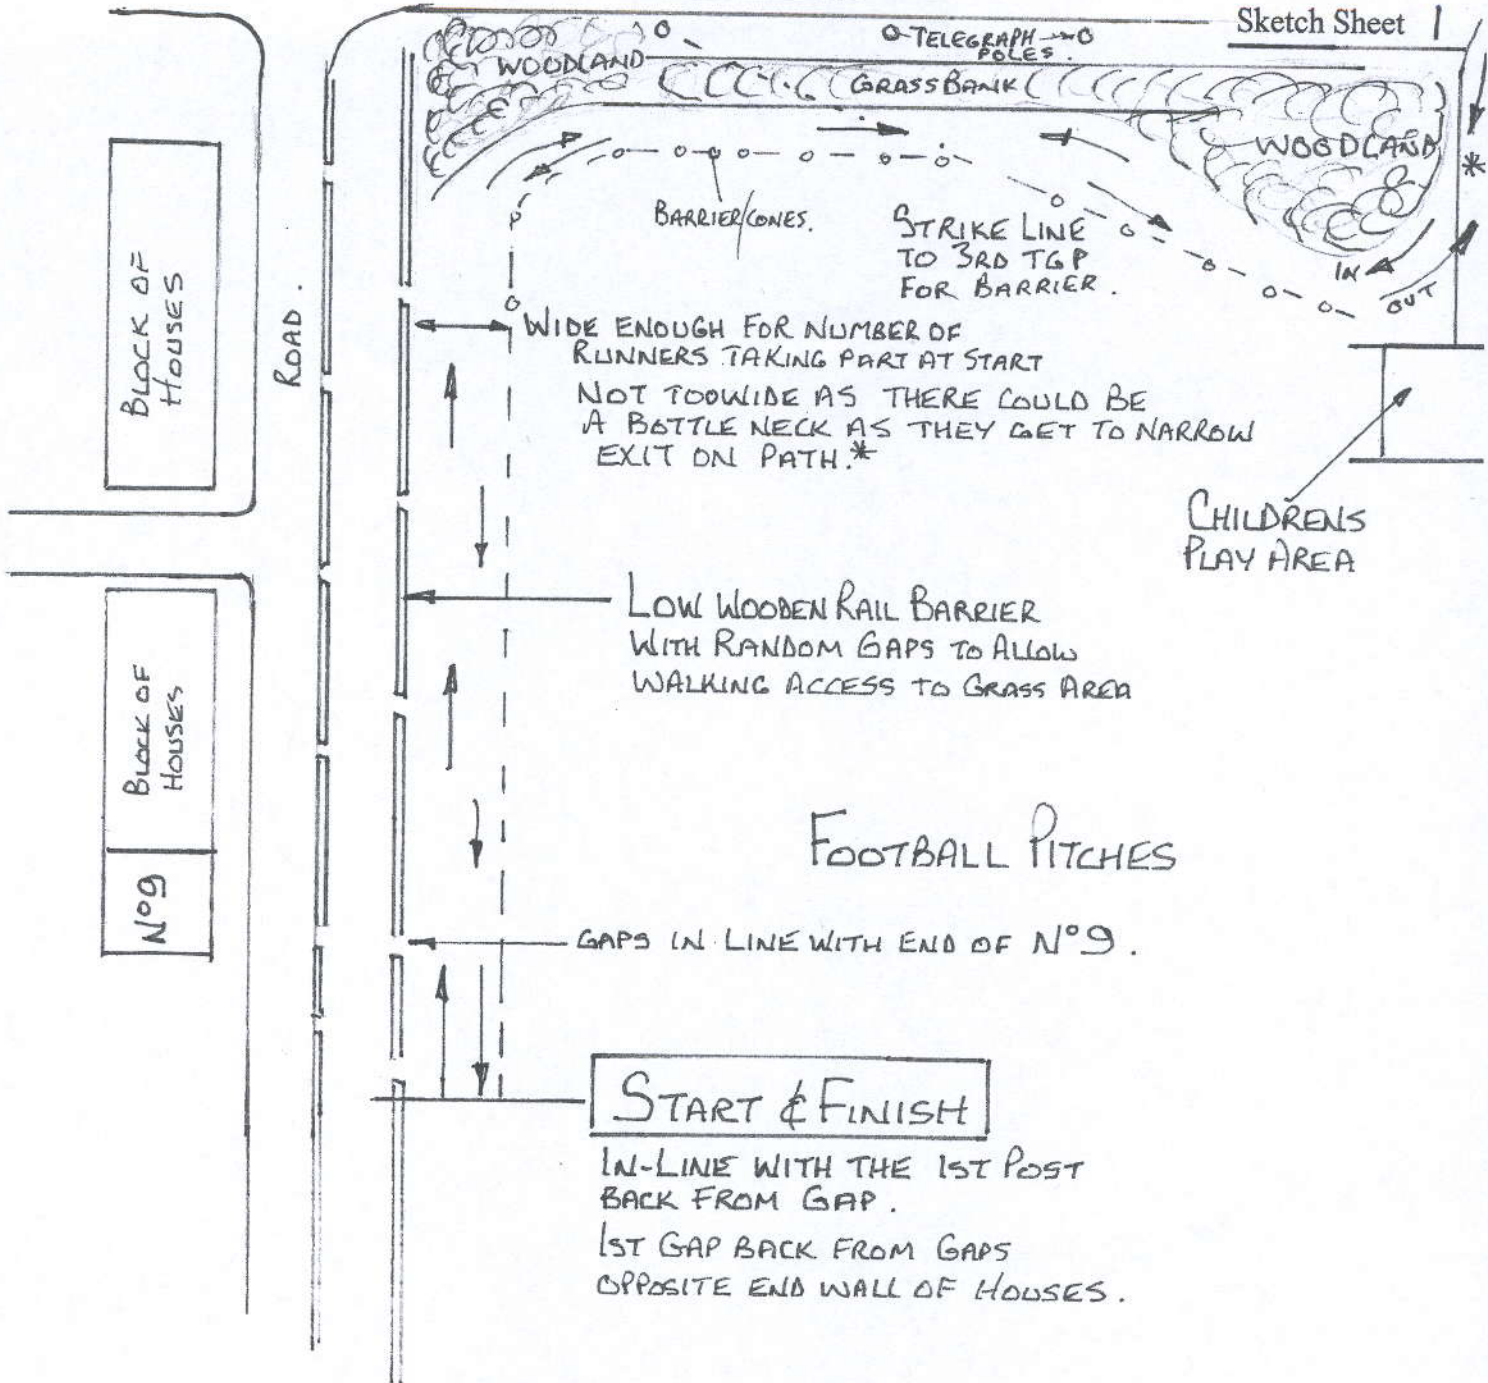 Sketch Sheet 1
TELEGRAPH
POLES.
WOODLAND
GRASS BANK
WOODLAND
*
BARRIER/CONES.
STRIKE LINE
TO 3RD TGP
FOR BARRIER.
IN
OUT
BLOCK OF
HOUSES
ROAD.
WIDE ENOUGH FOR NUMBER OF
RUNNERS TAKING PART AT START
NOT TOOWIDE AS THERE COULD BE
A BOTTLE NECK AS THEY GET TO NARROW
EXIT ON PATH.*
CHILDRENS
PLAY AREA
LOW WOODEN RAIL BARRIER
WITH RANDOM GAPS TO ALLOW
WALKING ACCESS TO GRASS AREA
BLOCK OF
HOUSES
FOOTBALL PITCHES
Nº9
GAPS IN LINE WITH END OF Nº9.
START & FINISH
IN-LINE WITH THE 1ST POST
BACK FROM GAP.
1ST GAP BACK FROM GAPS
OPPOSITE END WALL OF HOUSES.